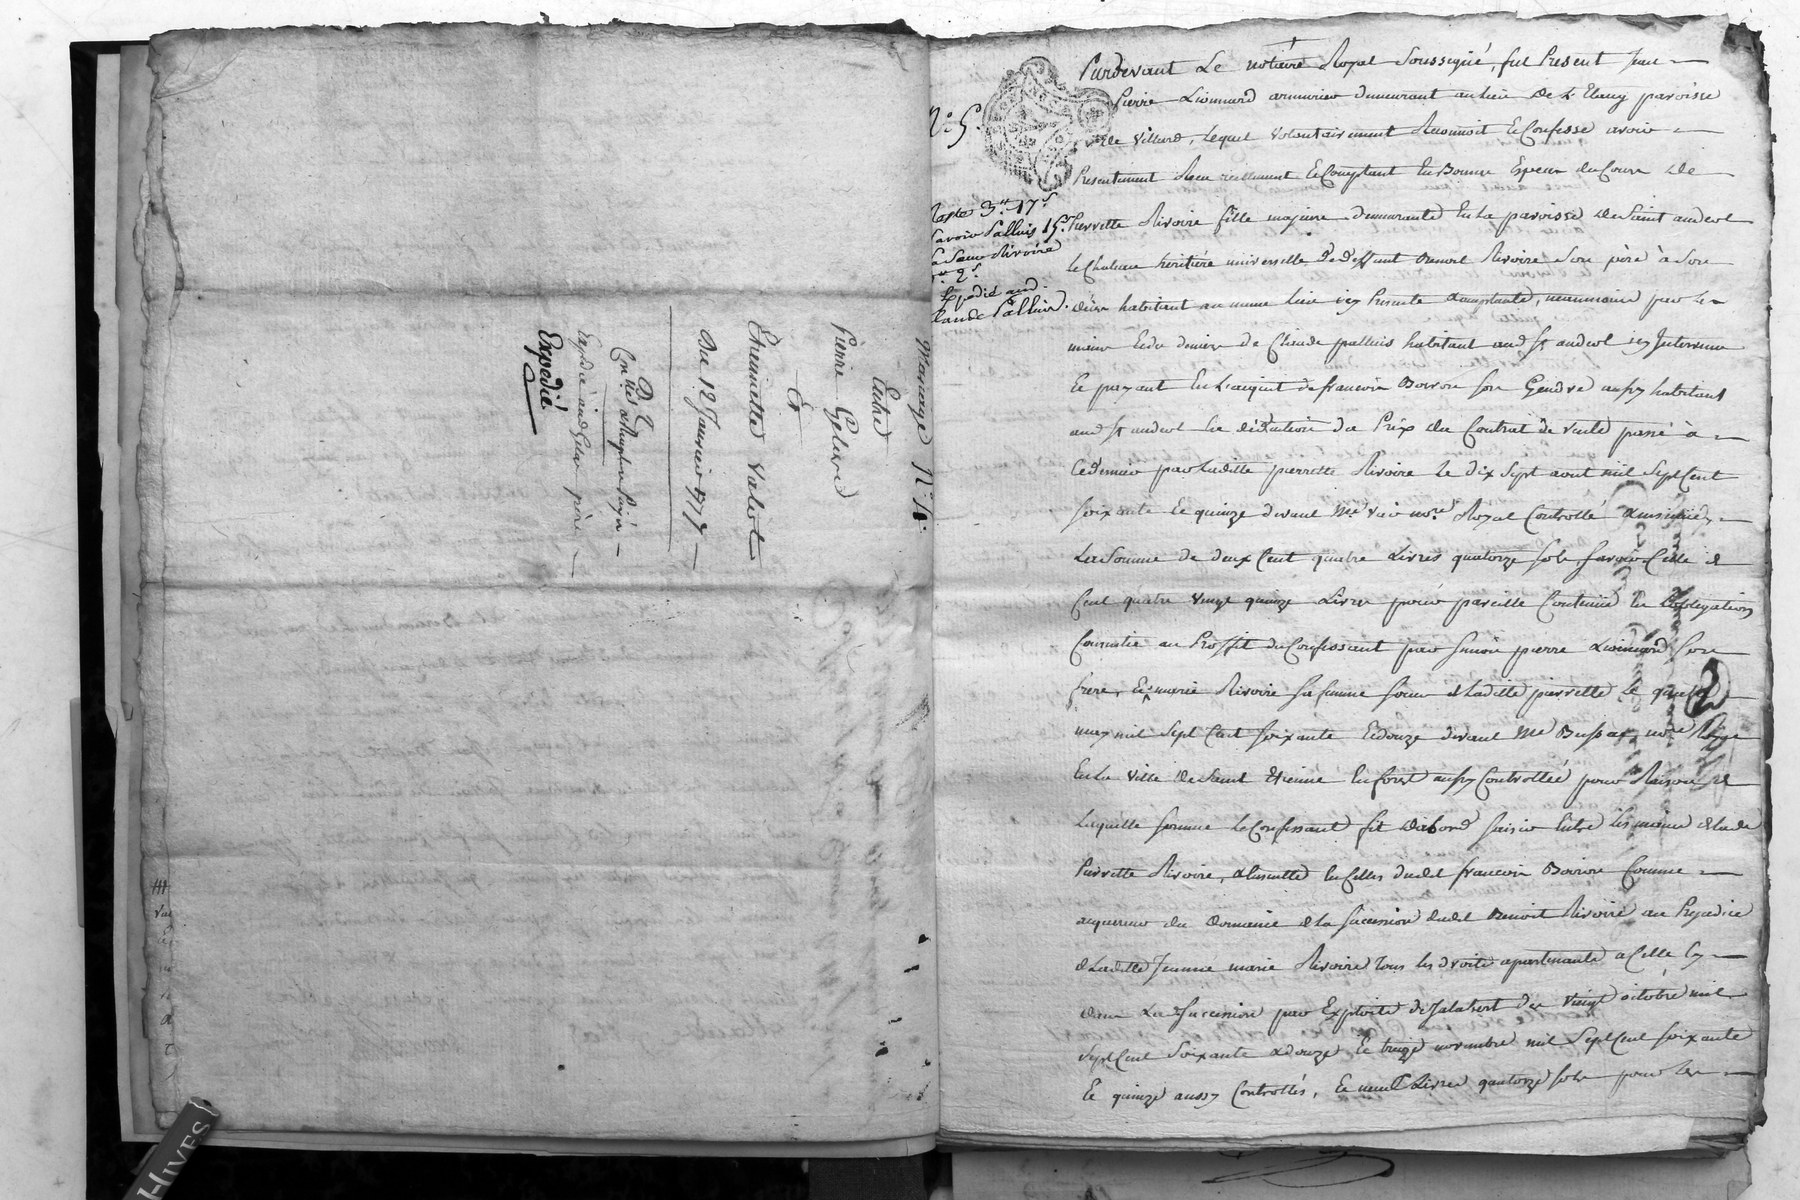 Mariage N.º 4.
Entre
Pierre Gelas
Et
Etiennette Valiot
Du 12 Janvier 177
Expédié aud Gelas père
Expédié
N.º 5.
Reste 3.ᵗᵗ 17.ˢ
savoir Palluis 15.ˢ
la Jeanne Rivoire
Expedié aud.
Claude Palluis.
Pardevant Le notaire Royal soussigné, fut Present Jean
Pierre Lionnard armurier demeurant au lieu de L'Etang paroisse
de Villars, Lequel volontairement Reconnoit & Confesse avoir
Presentement Receu réellement & Comptant En Bonnes Especes du Cours de
Pierrette Rivoire fille majeure demeurante En La paroisse de Saint andeol
le Chateau héritiére universelle de deffunt Benoit Rivoire son père à son
décès habitant au meme lieu icy Presente acceptante, neanmoins par les
mains & des deniers de Claude palluis habitant aud St andeol icy Intervenu
Et payant En L'acquit de francois Boiron son Gendre aussy habitant
aud St andeol En déduction du Prix du Contrat de vente passé à
ce dernier par Laditte pierrette Rivoire le dix sept aout mil sept Cent
soixante Et quinze devant Me no.re Royal Controllé & insinué,
La Somme de deux Cent quatre Livres quatorze sols, savoir Celle de
Cent quatre vingt quinze Livres pour pareille Contenüe En L'obligation
Consentie au Proffit du Confessant par Simon pierre Lionnard son
frere, & marie Rivoire sa femme soeur de Laditte pierrette le quinze
may mil sept Cent soixante & douze devant Me Bussac, no.re Royal
En La ville de Saint Etienne En forest aussy Controllée pour Raison de
Laquelle somme le Confessant fit d'abord saisir Entre les mains de lade
Pierrette Rivoire, & Ensuitte En Celles dudit francois Boiron Comme
acquereur du domaine de la succession dudit Benoit Rivoire au Prejudice
de Laditte Jeanne marie Rivoire tous les droits apartenants a Celle cy
dans Lad succession par Exploits de Jalabert des vingt octobre mil
sept Cent soixante & douze, & treize novembre mil sept Cent soixante
Et quinze aussy Controllés, Et neuf Livres quatorze sols pour les
HIVES